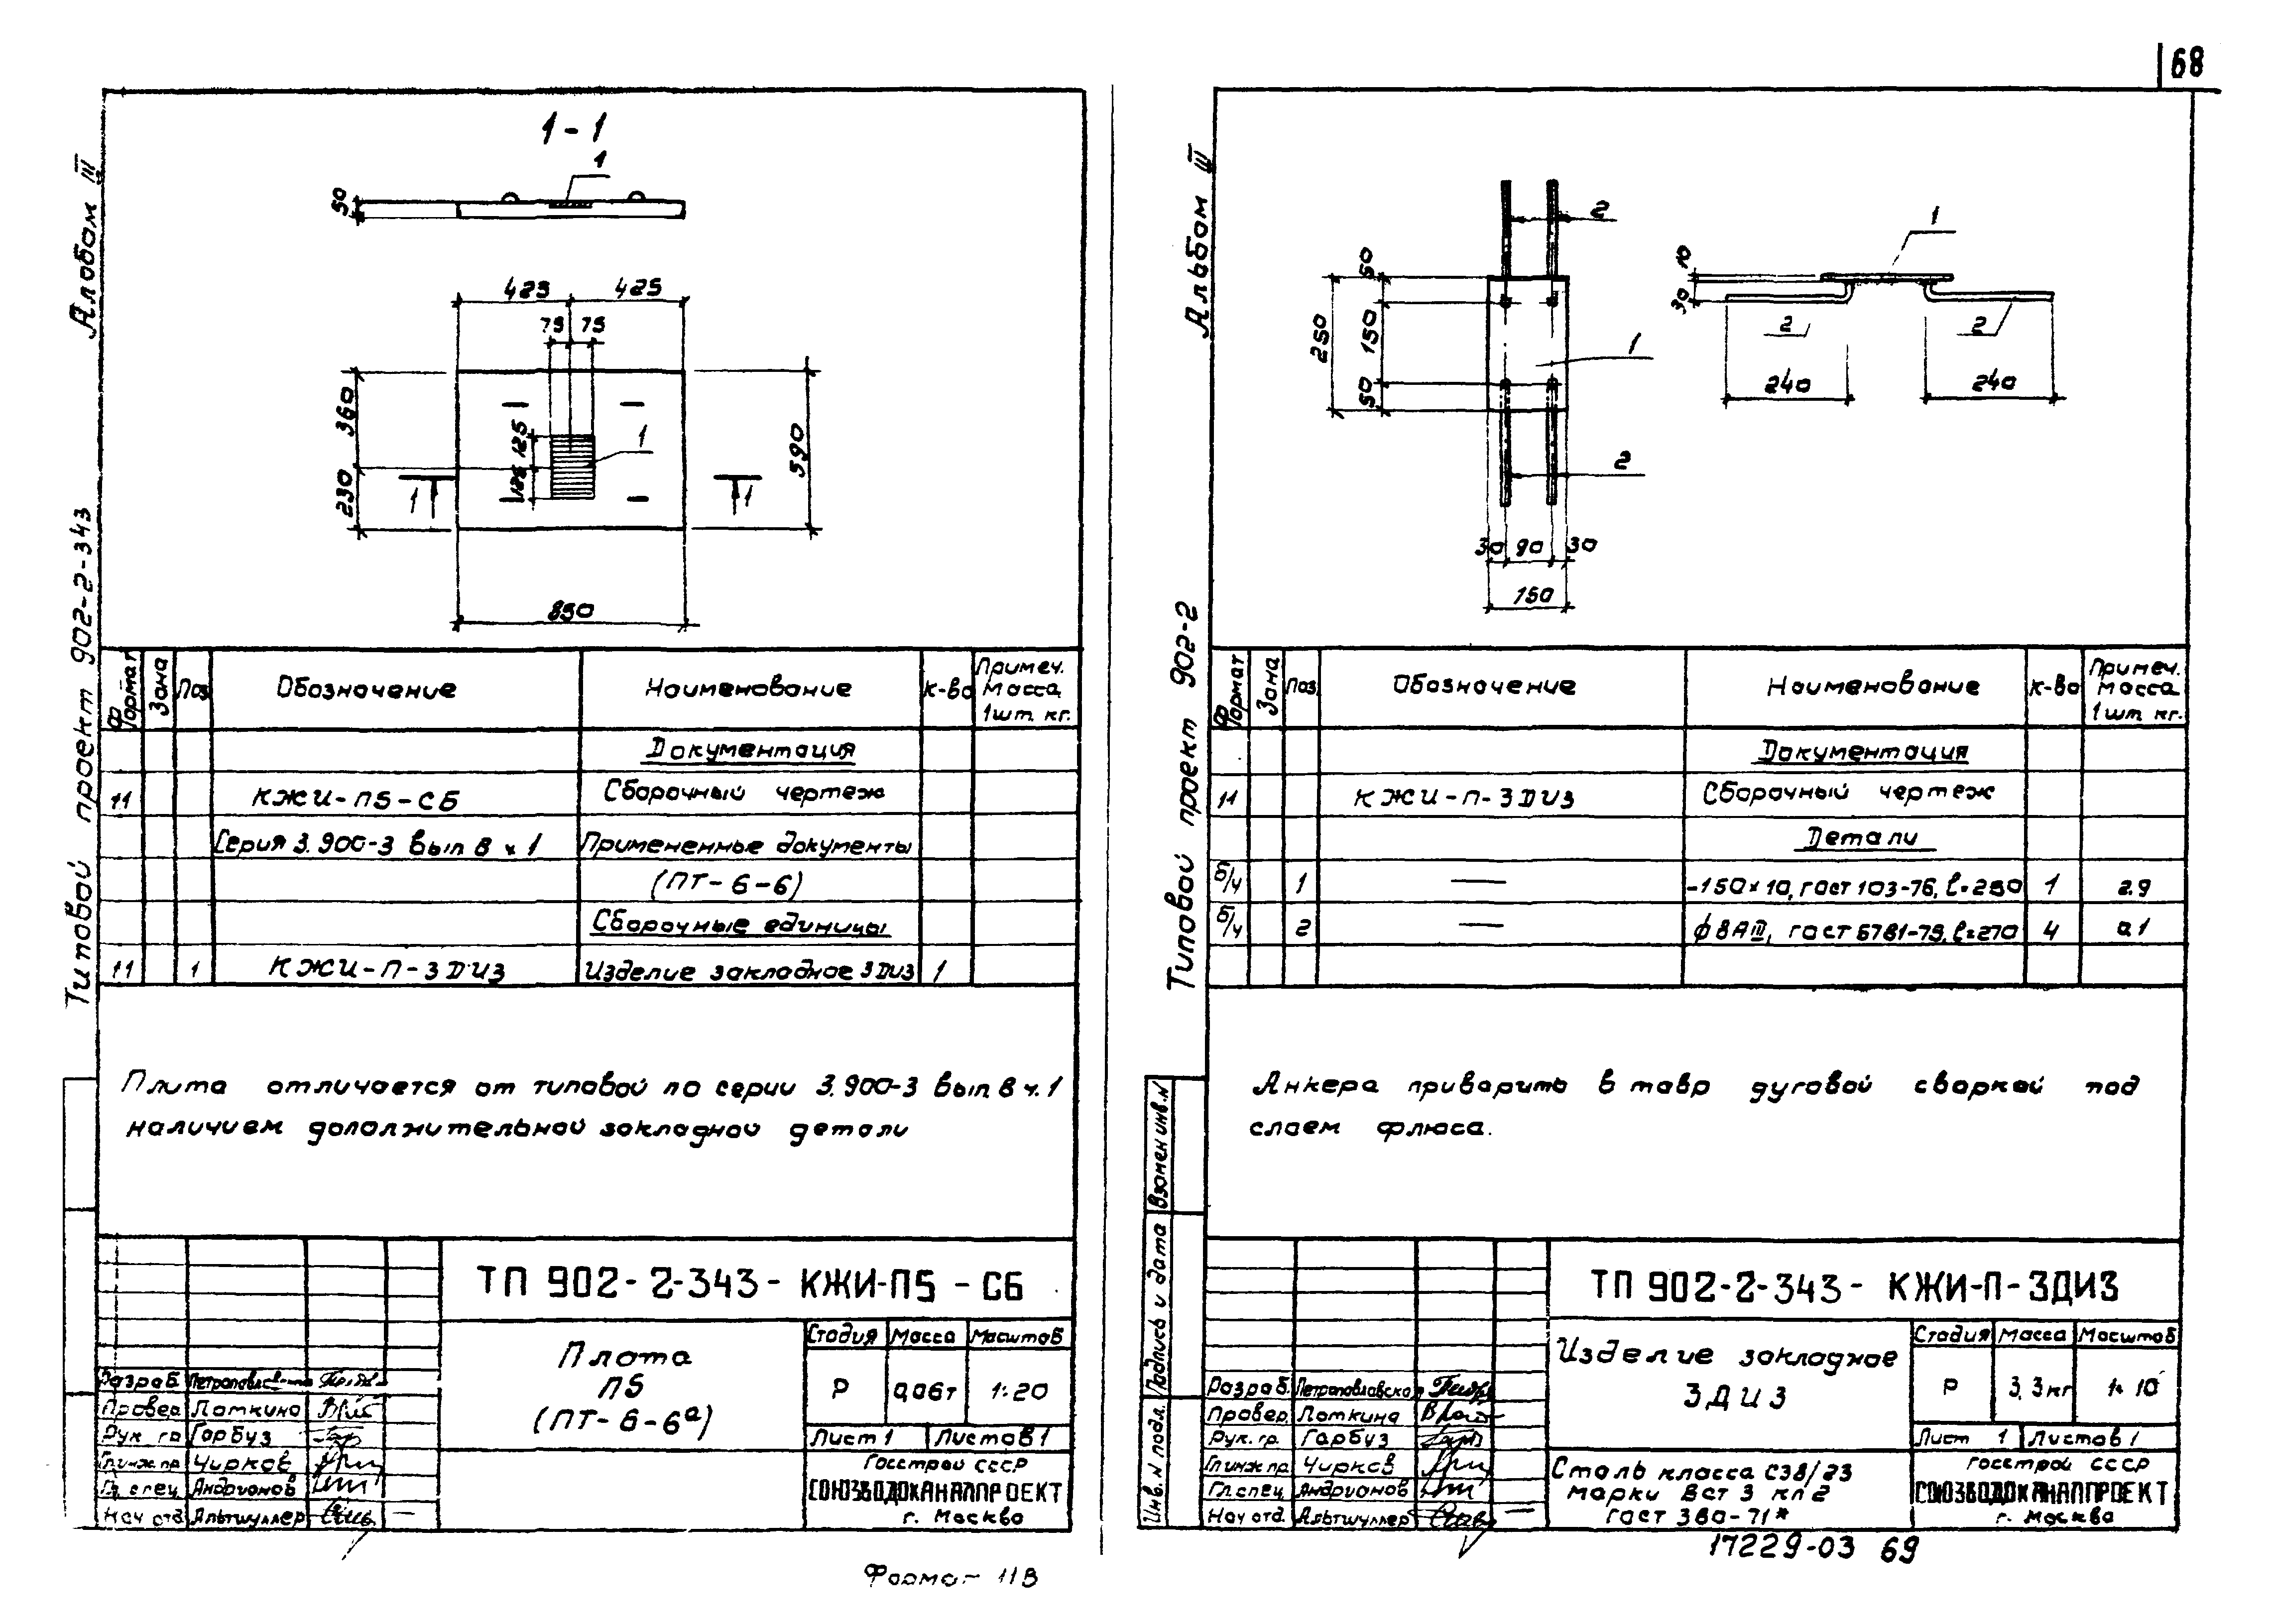 68
Альбом III
Типовой проект 902-2-343
1-1
1
50
425
425
75
75
360
230
125
125
1
590
1
1
850
Формат
Зона
Поз
Обозначение
Наименование
К-во
Примеч.
масса
1шт. кг.
Документация
11
КЖИ-П5-СБ
Сборочный чертеж
Серия 3.900-3 вып 8 ч 1
Примененные документы
(ПТ-6-6)
Сборочные единицы
11
1
КЖИ-П-3ДИ3
Изделие закладное 3ДИ3
1
Плита отличается от типовой по серии 3.900-3 вып. 8 ч. 1
наличием дополнительной закладной детали
ТП 902-2-343-КЖИ-П5-СБ
Плита
П5
(ПТ-6-6а)
Стадия
Масса
Масштаб
Р
0,06т
1:20
Лист 1
Листов 1
Госстрой СССР
СОЮЗВОДОКАНАЛПРОЕКТ
г. Москва
Разраб.
Провер.
Лоткина
Рук. гр
Гарбуз
Гл.инж.пр.
Чирков
Гл. спец.
Андрианов
Нач отд.
Альтшуллер
Формат 11В
Альбом III
Типовой проект 902-2
2
1
250
50
150
50
2
30
90
30
150
1
10
30
2
2
240
240
Формат
Зона
Поз
Обозначение
Наименование
К-во
Примеч.
масса
1 шт. кг.
Документация
11
КЖИ-П-3ДИ3
Сборочный чертеж
Детали
Б/ч
1
-150×10, ГОСТ 103-76, l=250
1
2.9
Б/ч
2
ф8АIII, ГОСТ 5781-75, l=270
4
0.1
Анкера приварить в тавр дуговой сваркой под
слоем флюса.
Взамен инв.N
Подпись и дата
Инв. N подл.
ТП 902-2-343-КЖИ-П-3ДИ3
Изделие закладное
3ДИ3
Стадия
Масса
Масштаб
Р
3,3кг
1:10
Лист 1
Листов 1
Сталь класса С38/23
марки Вст 3 кп 2
ГОСТ 380-71*
Госстрой СССР
СОЮЗВОДОКАНАЛПРОЕКТ
г. Москва
Разраб.
Петропавловска
Провер.
Лоткина
Рук. гр.
Гарбуз
Гл.инж.пр.
Чирков
Гл.спец.
Андрианов
Нач отд.
Альтшуллер
17229-03 69